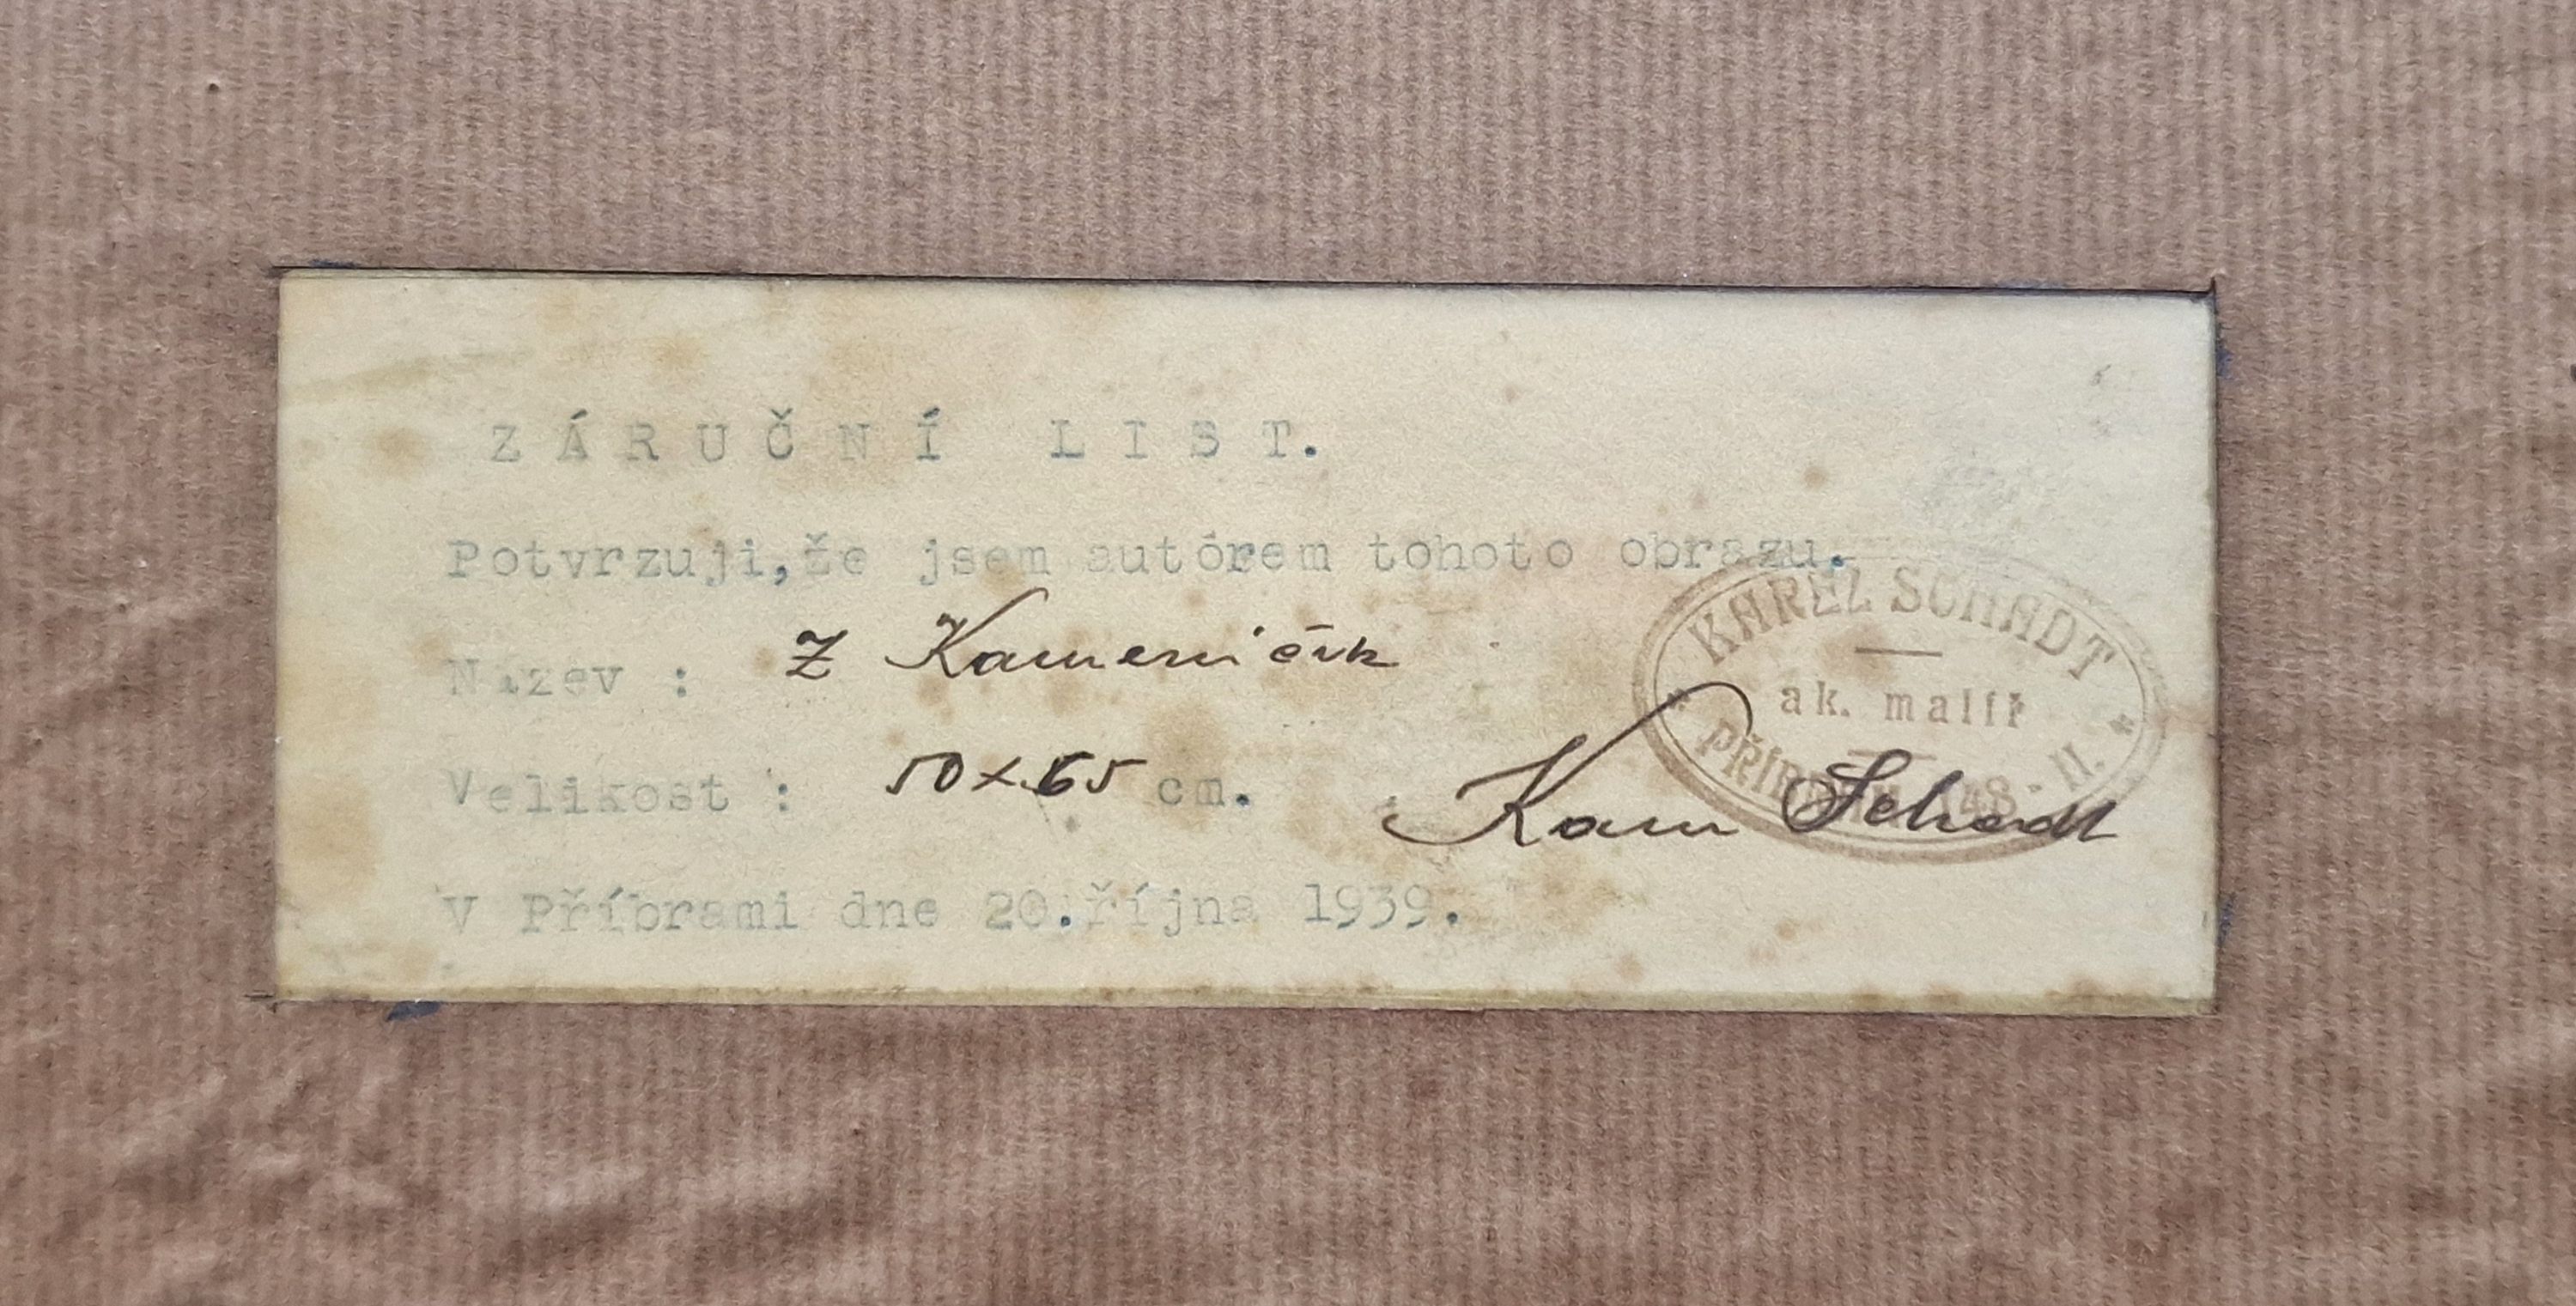 ZÁRUČNÍ LIST.
Potvrzuji,že jsem autórem tohoto obrazu.
Název : Z Kameniček
Velikost : 50x65 cm.
KAREL SCHADT
ak. malíř
PŘÍBRAM 148 - II.
Karel Schadt
V Příbrami dne 20.října 1939.